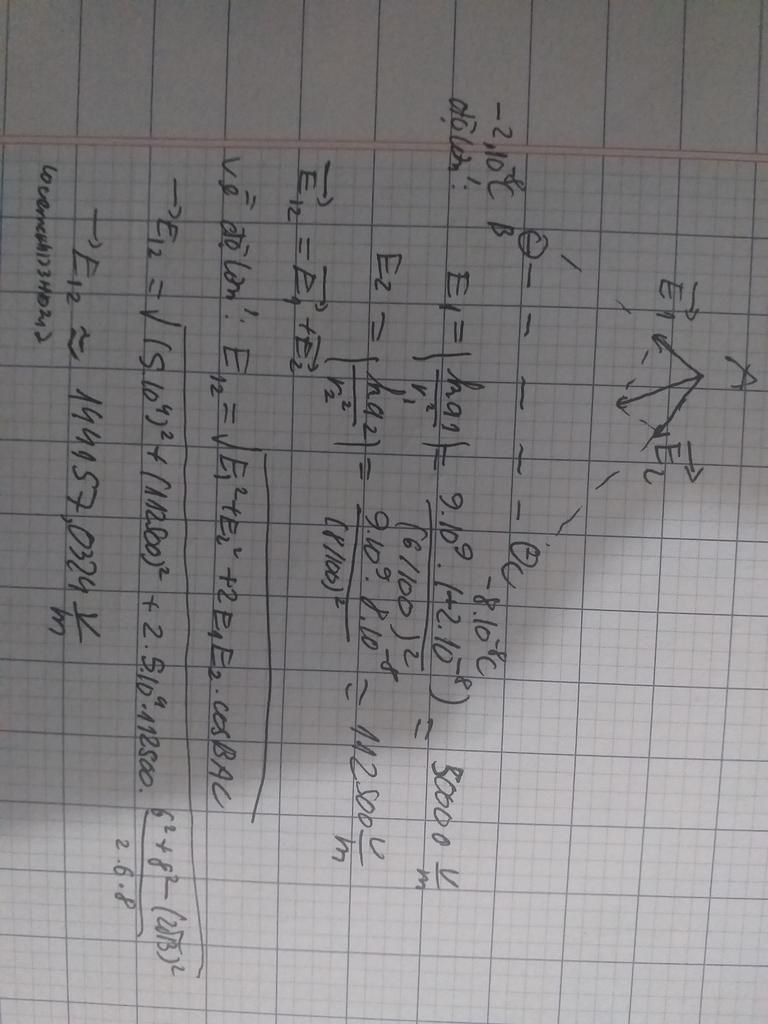 A
E₁→ E₂→
-2.10⁻⁸C B ⊖ ⊖ C -8.10⁻⁸C
độ lớn: E₁ = |kq₁/r₁²| = 9.10⁹.(+2.10⁻⁸)/(6/100)² = 50000 V/m
E₂ = |kq₂/r₂²| = 9.10⁹.8.10⁻⁸/(8/100)² = 112500 V/m
E₁₂→ = E₁→ + E₂→
về độ lớn: E₁₂ = √(E₁² + E₂² + 2E₁E₂.cosBAC)
→ E₁₂ = √((5.10⁴)² + (112500)² + 2.5.10⁴.112500. (6² + 8² - (2√13)²)/(2.6.8))
→ E₁₂ ≈ 144157,0324 V/m